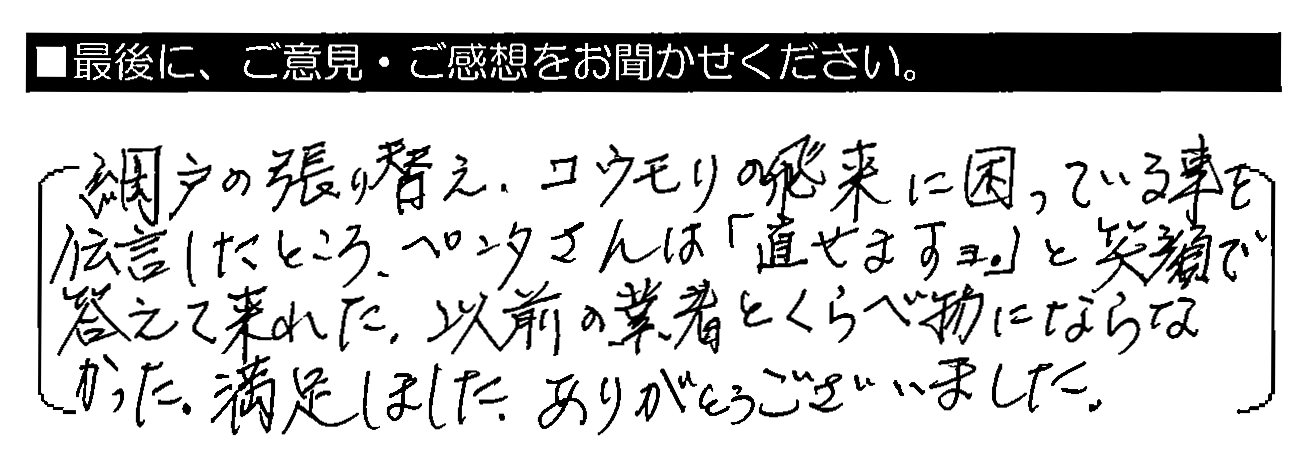 ■最後に、ご意見・ご感想をお聞かせください。
網戸の張り替え、コウモリの飛来に困っている事を
伝言したところ、ペンタさんは「直せますヨ。」と笑顔で
答えて来れた。以前の業者とくらべ物にならな
かった。満足しました。ありがとうございました。